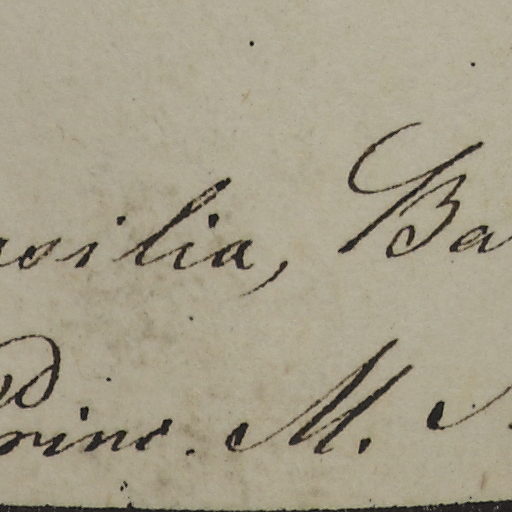 asilia, Ba
Prine. M.